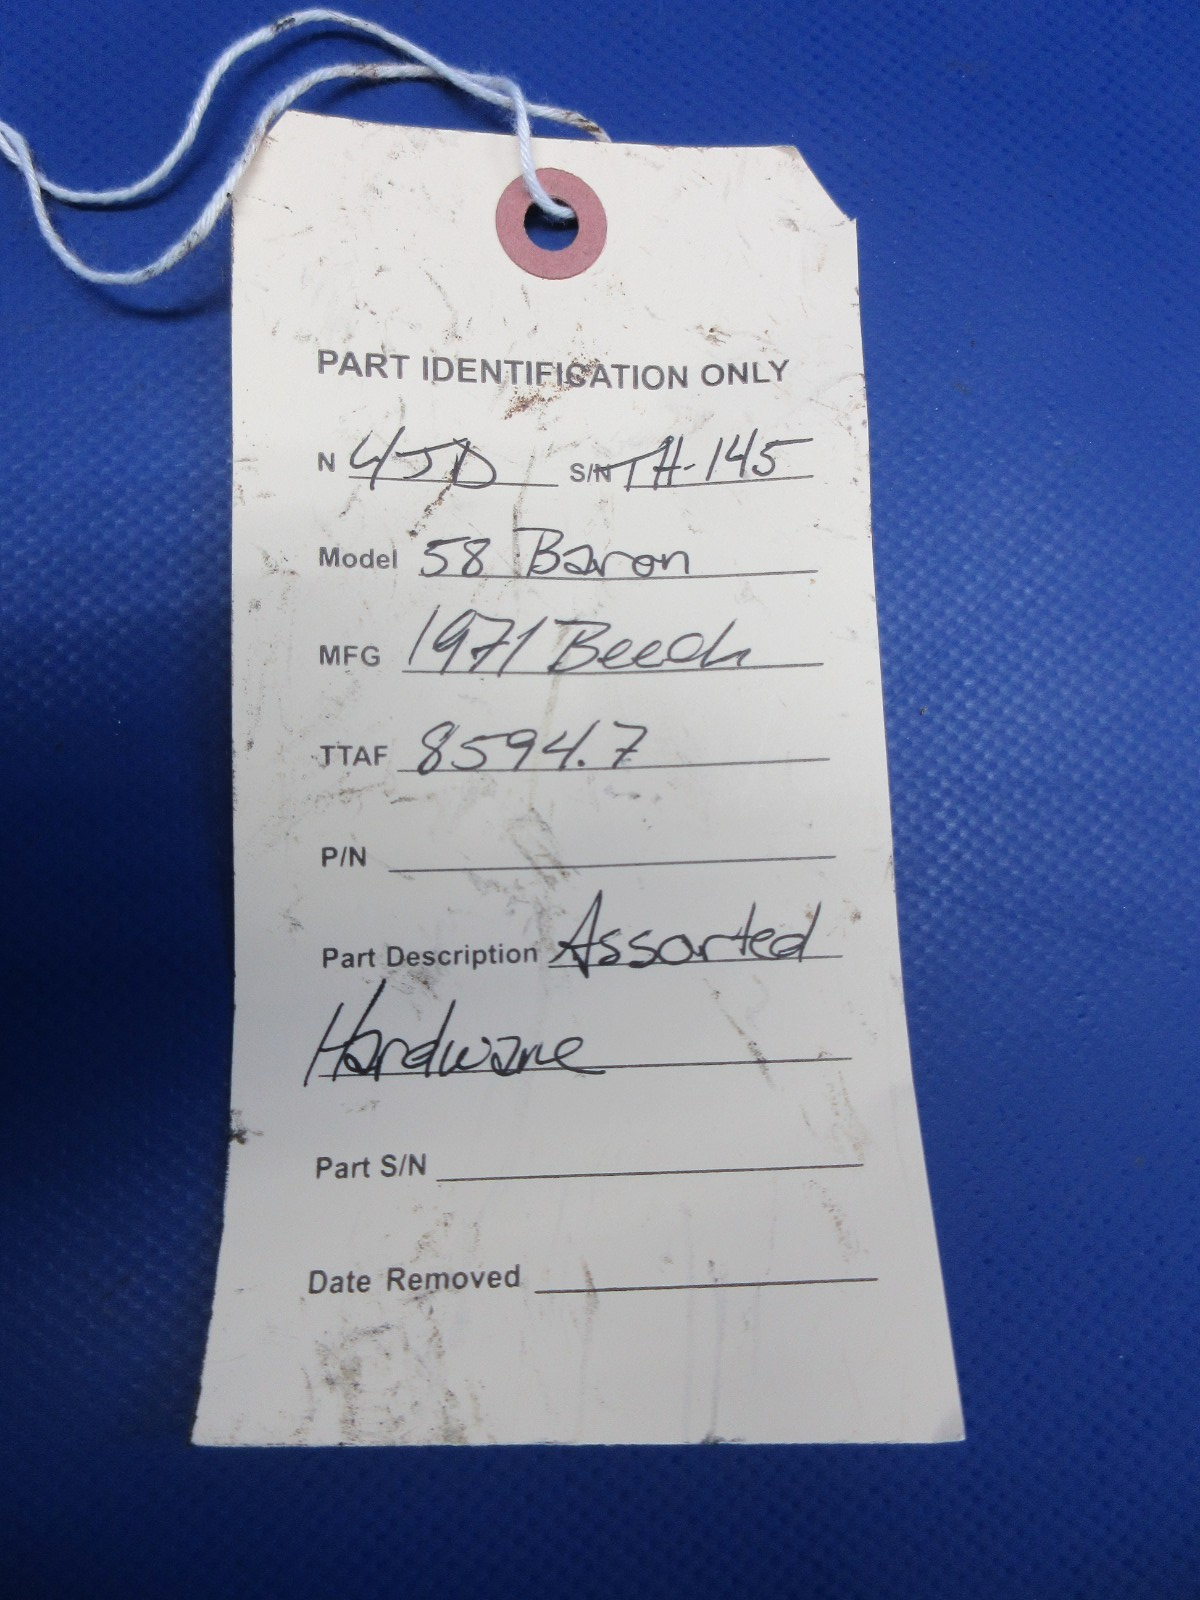 PART IDENTIFICATION ONLY
N 45D S/N TH-145
Model 58 Baron
MFG 1971 Beech
TTAF 8594.7
P/N
Part Description Assorted
Hardware
Part S/N
Date Removed